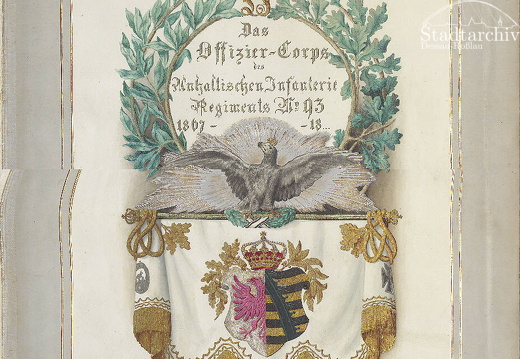 Stadtarchiv
Dessau-Roßlau
Das
Offizier-Corps
des
Anhaltischen Infanterie
Regiments No. 93
1867 - - 18...